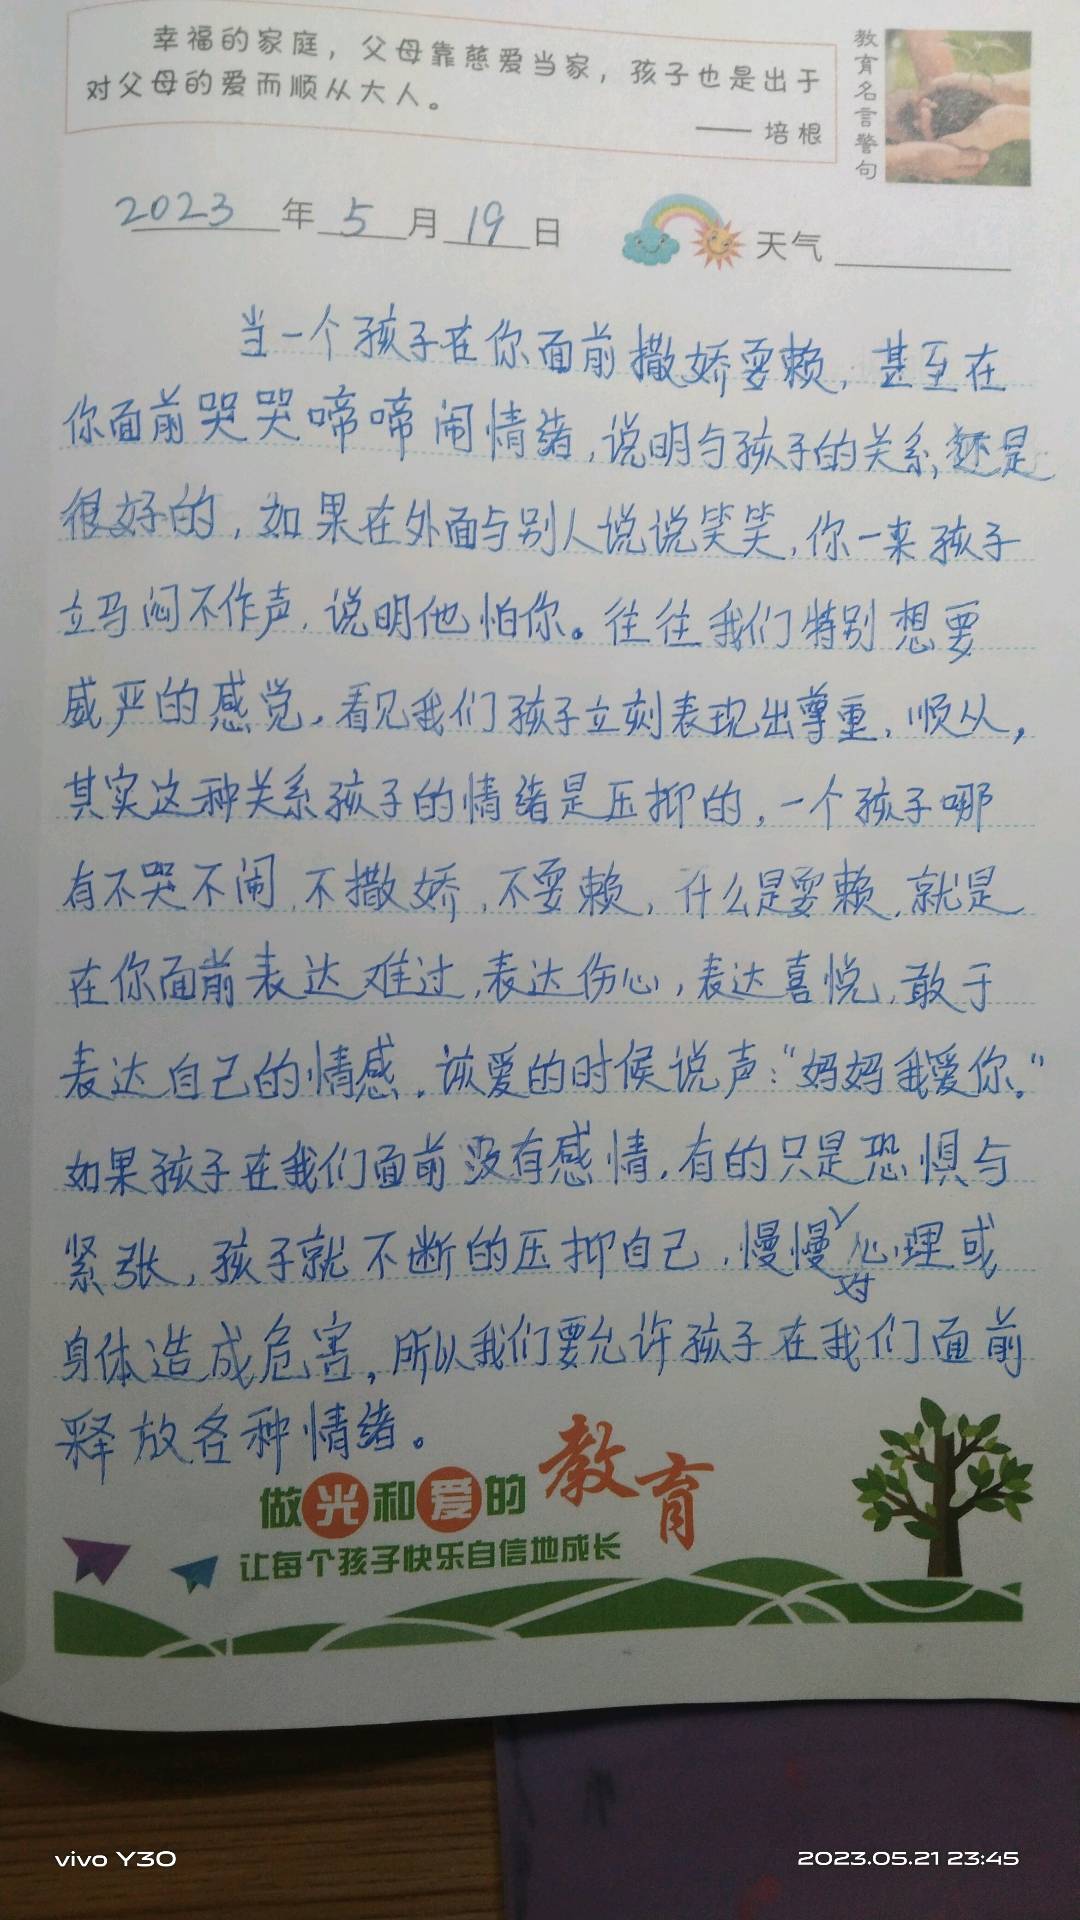 幸福的家庭，父母靠慈爱当家，孩子也是出于
对父母的爱而顺从大人。
—— 培根
教育名言警句
2023年5月19日
天气
当一个孩子在你面前撒娇耍赖，甚至在
你面前哭哭啼啼闹情绪，说明与孩子的关系还是
很好的，如果在外面与别人说说笑笑，你一来孩子
立马闷不作声，说明他怕你。往往我们特别想要
威严的感觉，看见我们孩子立刻表现出尊重，顺从，
其实这种关系孩子的情绪是压抑的，一个孩子哪
有不哭不闹，不撒娇，不耍赖，什么是耍赖，就是
在你面前表达难过，表达伤心，表达喜悦，敢于
表达自己的情感。该爱的时候说声：“妈妈我爱你。”
如果孩子在我们面前没有感情，有的只是恐惧与
紧张，孩子就不断的压抑自己，慢慢对心理或
身体造成危害，所以我们要允许孩子在我们面前
释放各种情绪。
做光和爱的教育
让每个孩子快乐自信地成长
vivo Y30
2023.05.21 23:45